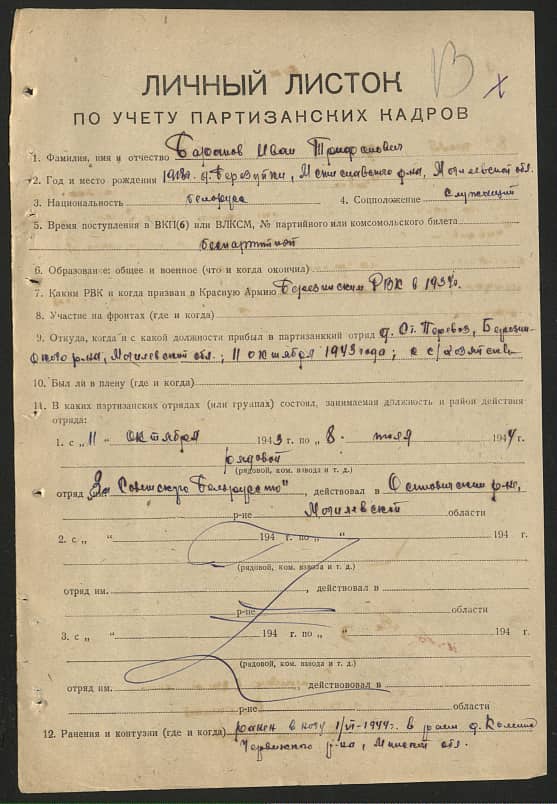 ЛИЧНЫЙ ЛИСТОК
ПО УЧЕТУ ПАРТИЗАНСКИХ КАДРОВ
1. Фамилия, имя и отчество Баранов Иван Трифонович
2. Год и место рождения д. Березуйки, Мстиславского р-на, Могилевской обл.
3. Национальность белорус 4. Соцположение служащий
5. Время поступления в ВКП(б) или ВЛКСМ, № партийного или комсомольского билета
беспартийной
6. Образование: общее и военное (что и когда окончил)
7. Каким РВК и когда призван в Красную Армию Березинским РВК в 1937г.
8. Участие на фронтах (где и когда)
9. Откуда, когда и с какой должности прибыл в партизанкий отряд д. Ст. Перевоз, Березин-
ского р-на, Могилевской обл.; 11 октября 1943 года; с с/хозяйства
10. Был ли в плену (где и когда)
11. В каких партизанских отрядах (или группах) состоял, занимаемая должность и район действия
отряда:
1. с „ 11 „ октября 1943 г. по „ 8 - июля 1944 г.
рядовой
(рядовой, ком. взвода и т. д.)
отряд им. "За Советскую Белоруссию", действовал в Осиповичском р-не,
р-не Могилевской области
2. с „ “ 194 г. по „ “ 194 г.
(рядовой, ком. взвода и т. д.)
отряд им. , действовал в
р-не области
3. с „ “ 194 г. по „ “ 194 г.
(рядовой, ком. взвода и т. д.)
отряд им. , действововал в
р-не области
12. Ранения и контузии (где и когда) ранен в ногу 1/VI-1944г. в район д.
Червенского р-на, Минской обл.